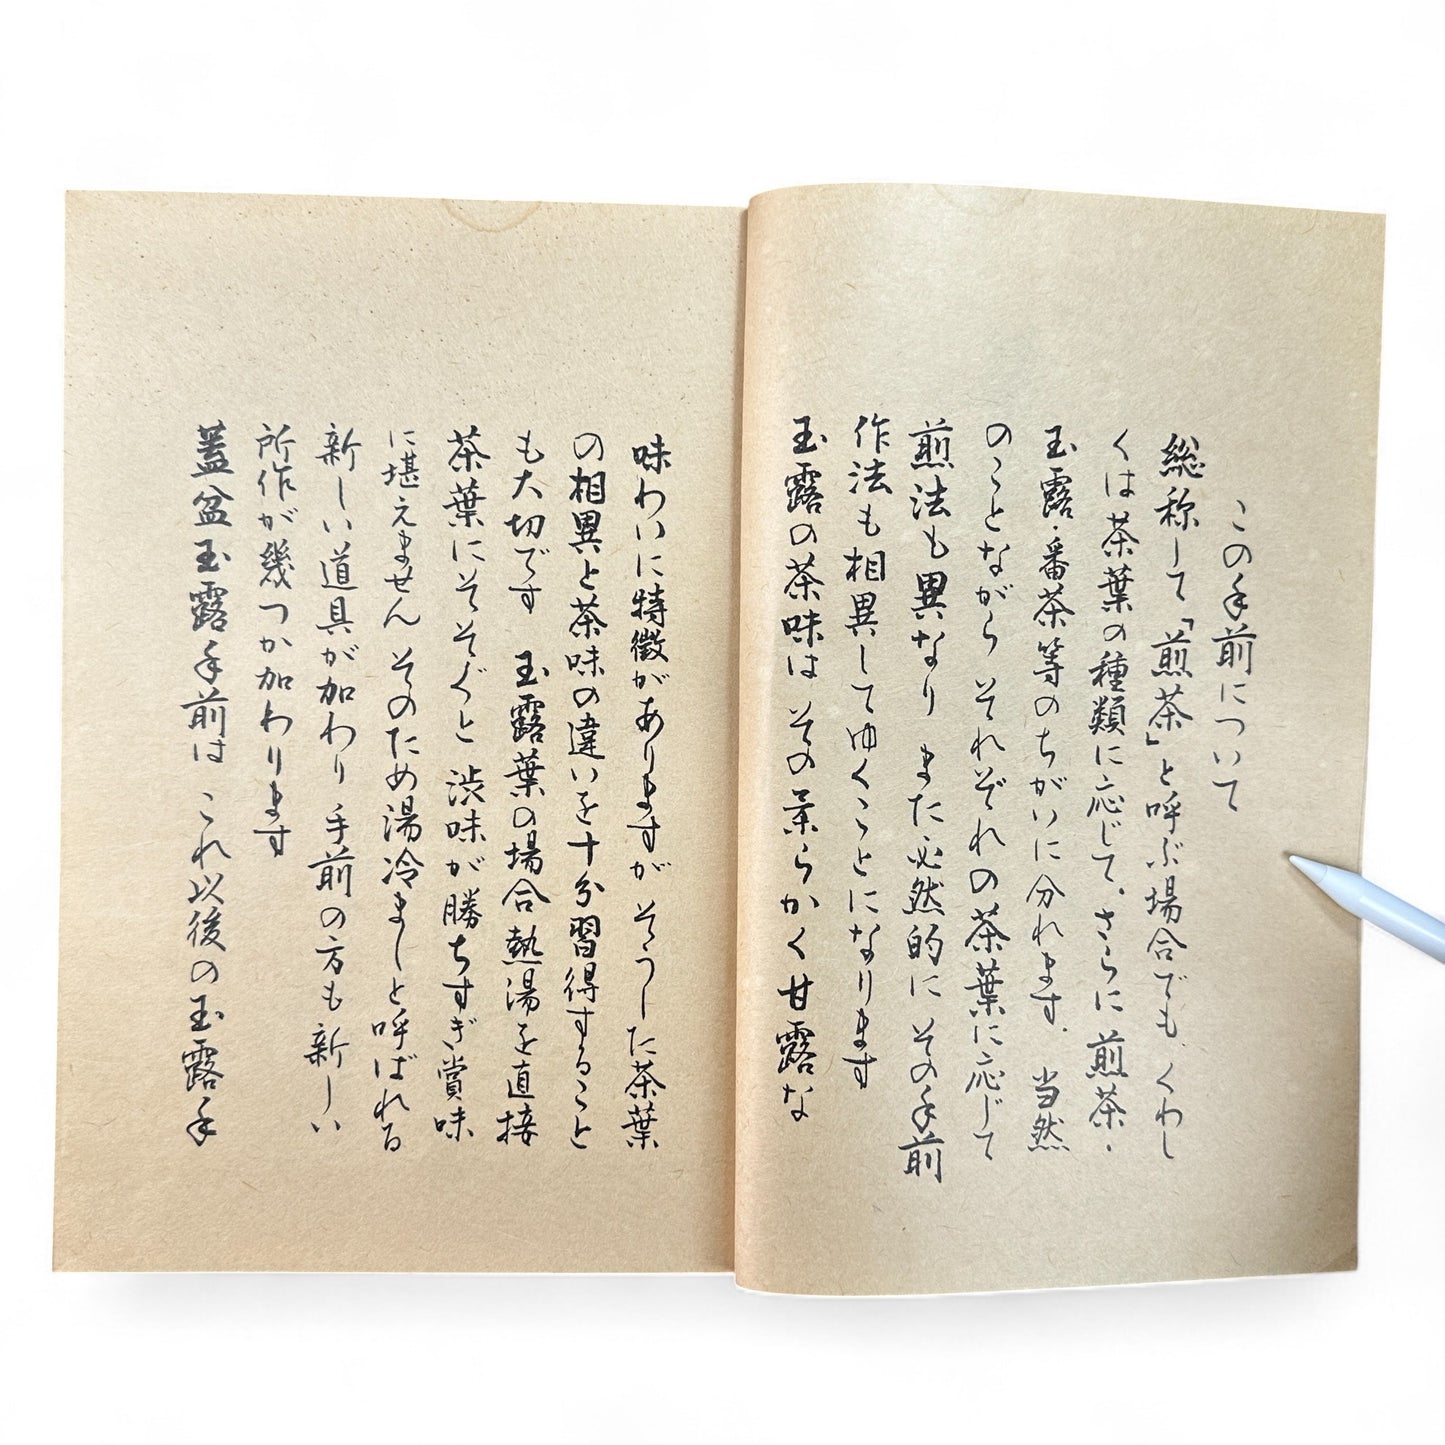 この手前について
総称して「煎茶」と呼ぶ場合でも、くわし
くは茶葉の種類に応じて、さらに煎茶・
玉露・番茶等のちがいに分れます、当然
のことながら それぞれの茶葉に応じて
煎法も異なり また必然的に その手前
作法も相異してゆくことになります
玉露の茶味は その柔らかく甘露な
味わいに特徴がありますが そうした茶葉
の相異と茶味の違いを十分習得すること
も大切です 玉露葉の場合熱湯を直接
茶葉にそそぐと 渋味が勝ちすぎ賞味
に堪えません そのため湯冷ましと呼ばれる
新しい道具が加わり 手前の方も新しい
所作が幾つか加わります
蓋盆玉露手前は これ以後の玉露手